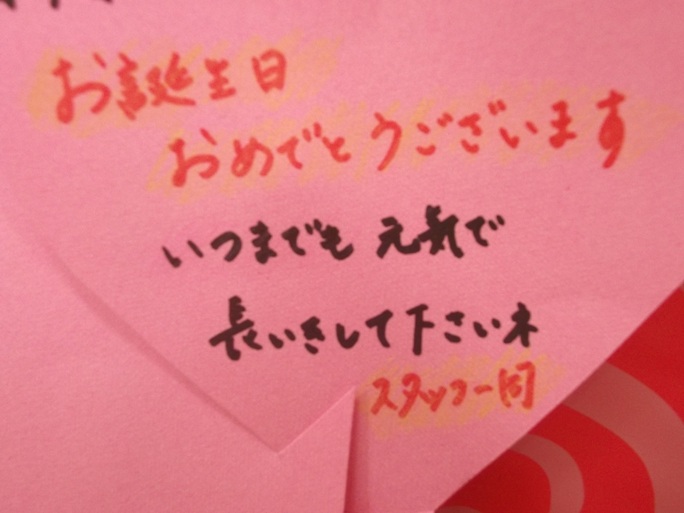 お誕生日
おめでとうございます
いつまでも 元気で
長いきして下さいネ
スタッフ一同